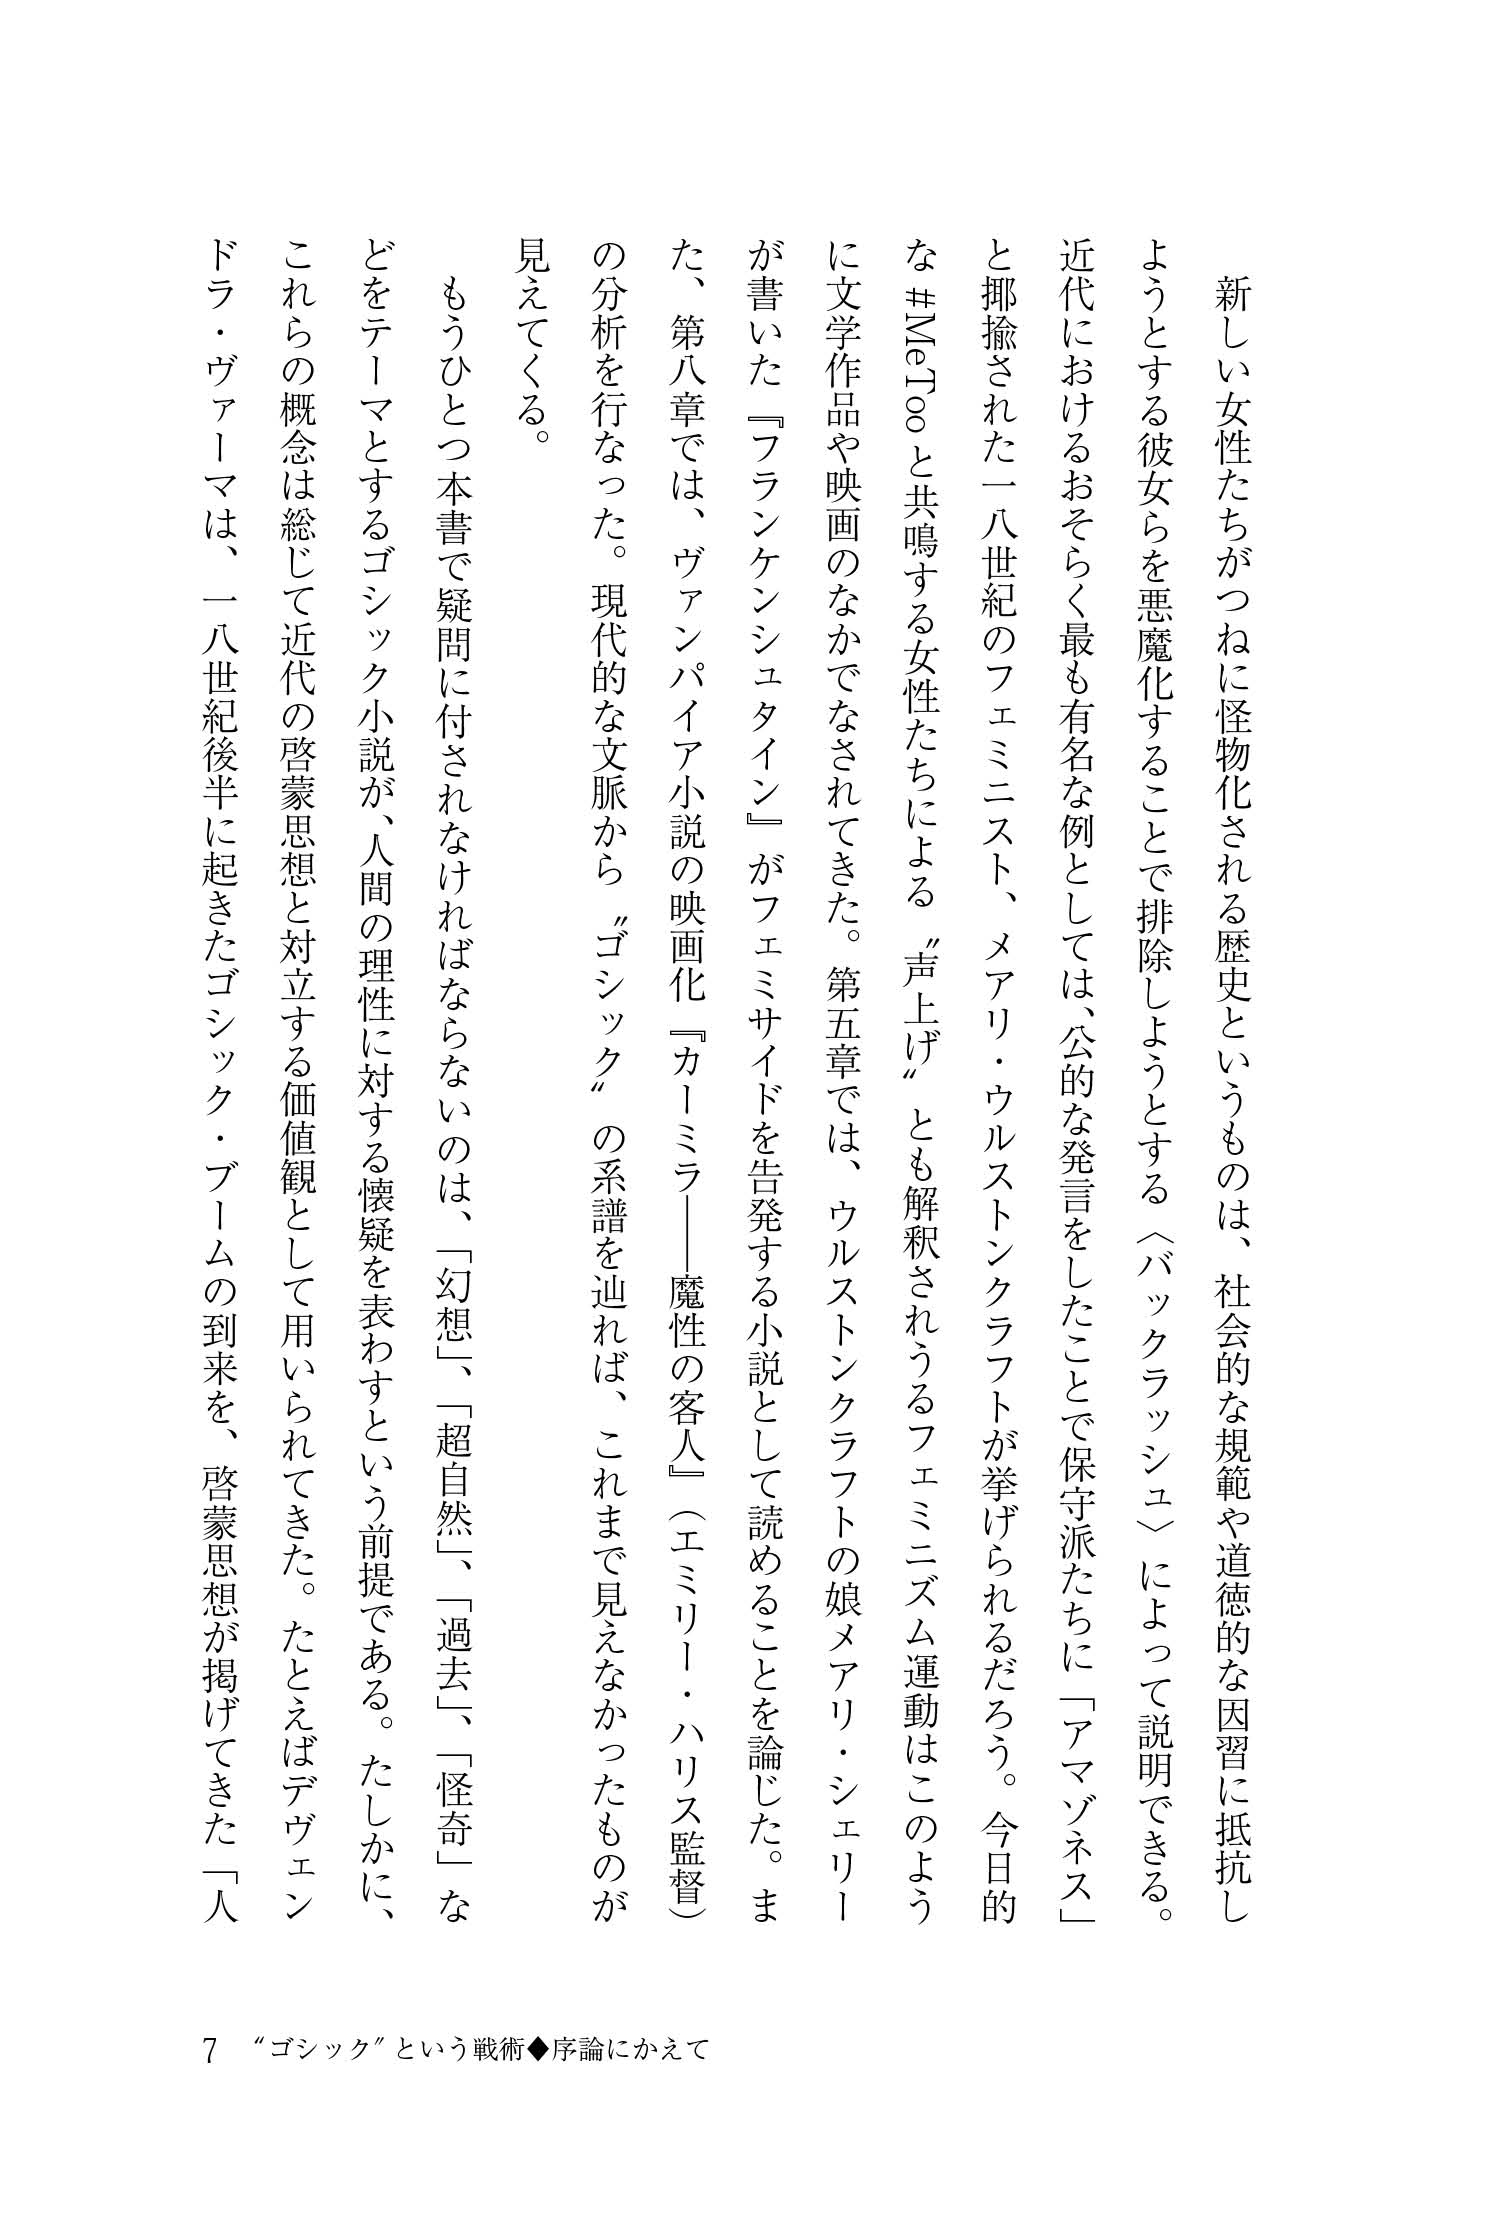 新しい女性たちがつねに怪物化される歴史というものは、社会的な規範や道徳的な因習に抵抗し
ようとする彼女らを悪魔化することで排除しようとする〈バックラッシュ〉によって説明できる。
近代におけるおそらく最も有名な例としては、公的な発言をしたことで保守派たちに「アマゾネス」
と揶揄された一八世紀のフェミニスト、メアリ・ウルストンクラフトが挙げられるだろう。今日的
な #MeToo と共鳴する女性たちによる〝声上げ〟とも解釈されうるフェミニズム運動はこのよう
に文学作品や映画のなかでなされてきた。第五章では、ウルストンクラフトの娘メアリ・シェリー
が書いた『フランケンシュタイン』がフェミサイドを告発する小説として読めることを論じた。ま
た、第八章では、ヴァンパイア小説の映画化『カーミラ――魔性の客人』（エミリー・ハリス監督）
の分析を行なった。現代的な文脈から〝ゴシック〟の系譜を辿れば、これまで見えなかったものが
見えてくる。
　もうひとつ本書で疑問に付されなければならないのは、「幻想」、「超自然」、「過去」、「怪奇」な
どをテーマとするゴシック小説が、人間の理性に対する懐疑を表わすという前提である。たしかに、
これらの概念は総じて近代の啓蒙思想と対立する価値観として用いられてきた。たとえばデヴェン
ドラ・ヴァーマは、一八世紀後半に起きたゴシック・ブームの到来を、啓蒙思想が掲げてきた「人
7　〝ゴシック〟という戦術◆序論にかえて